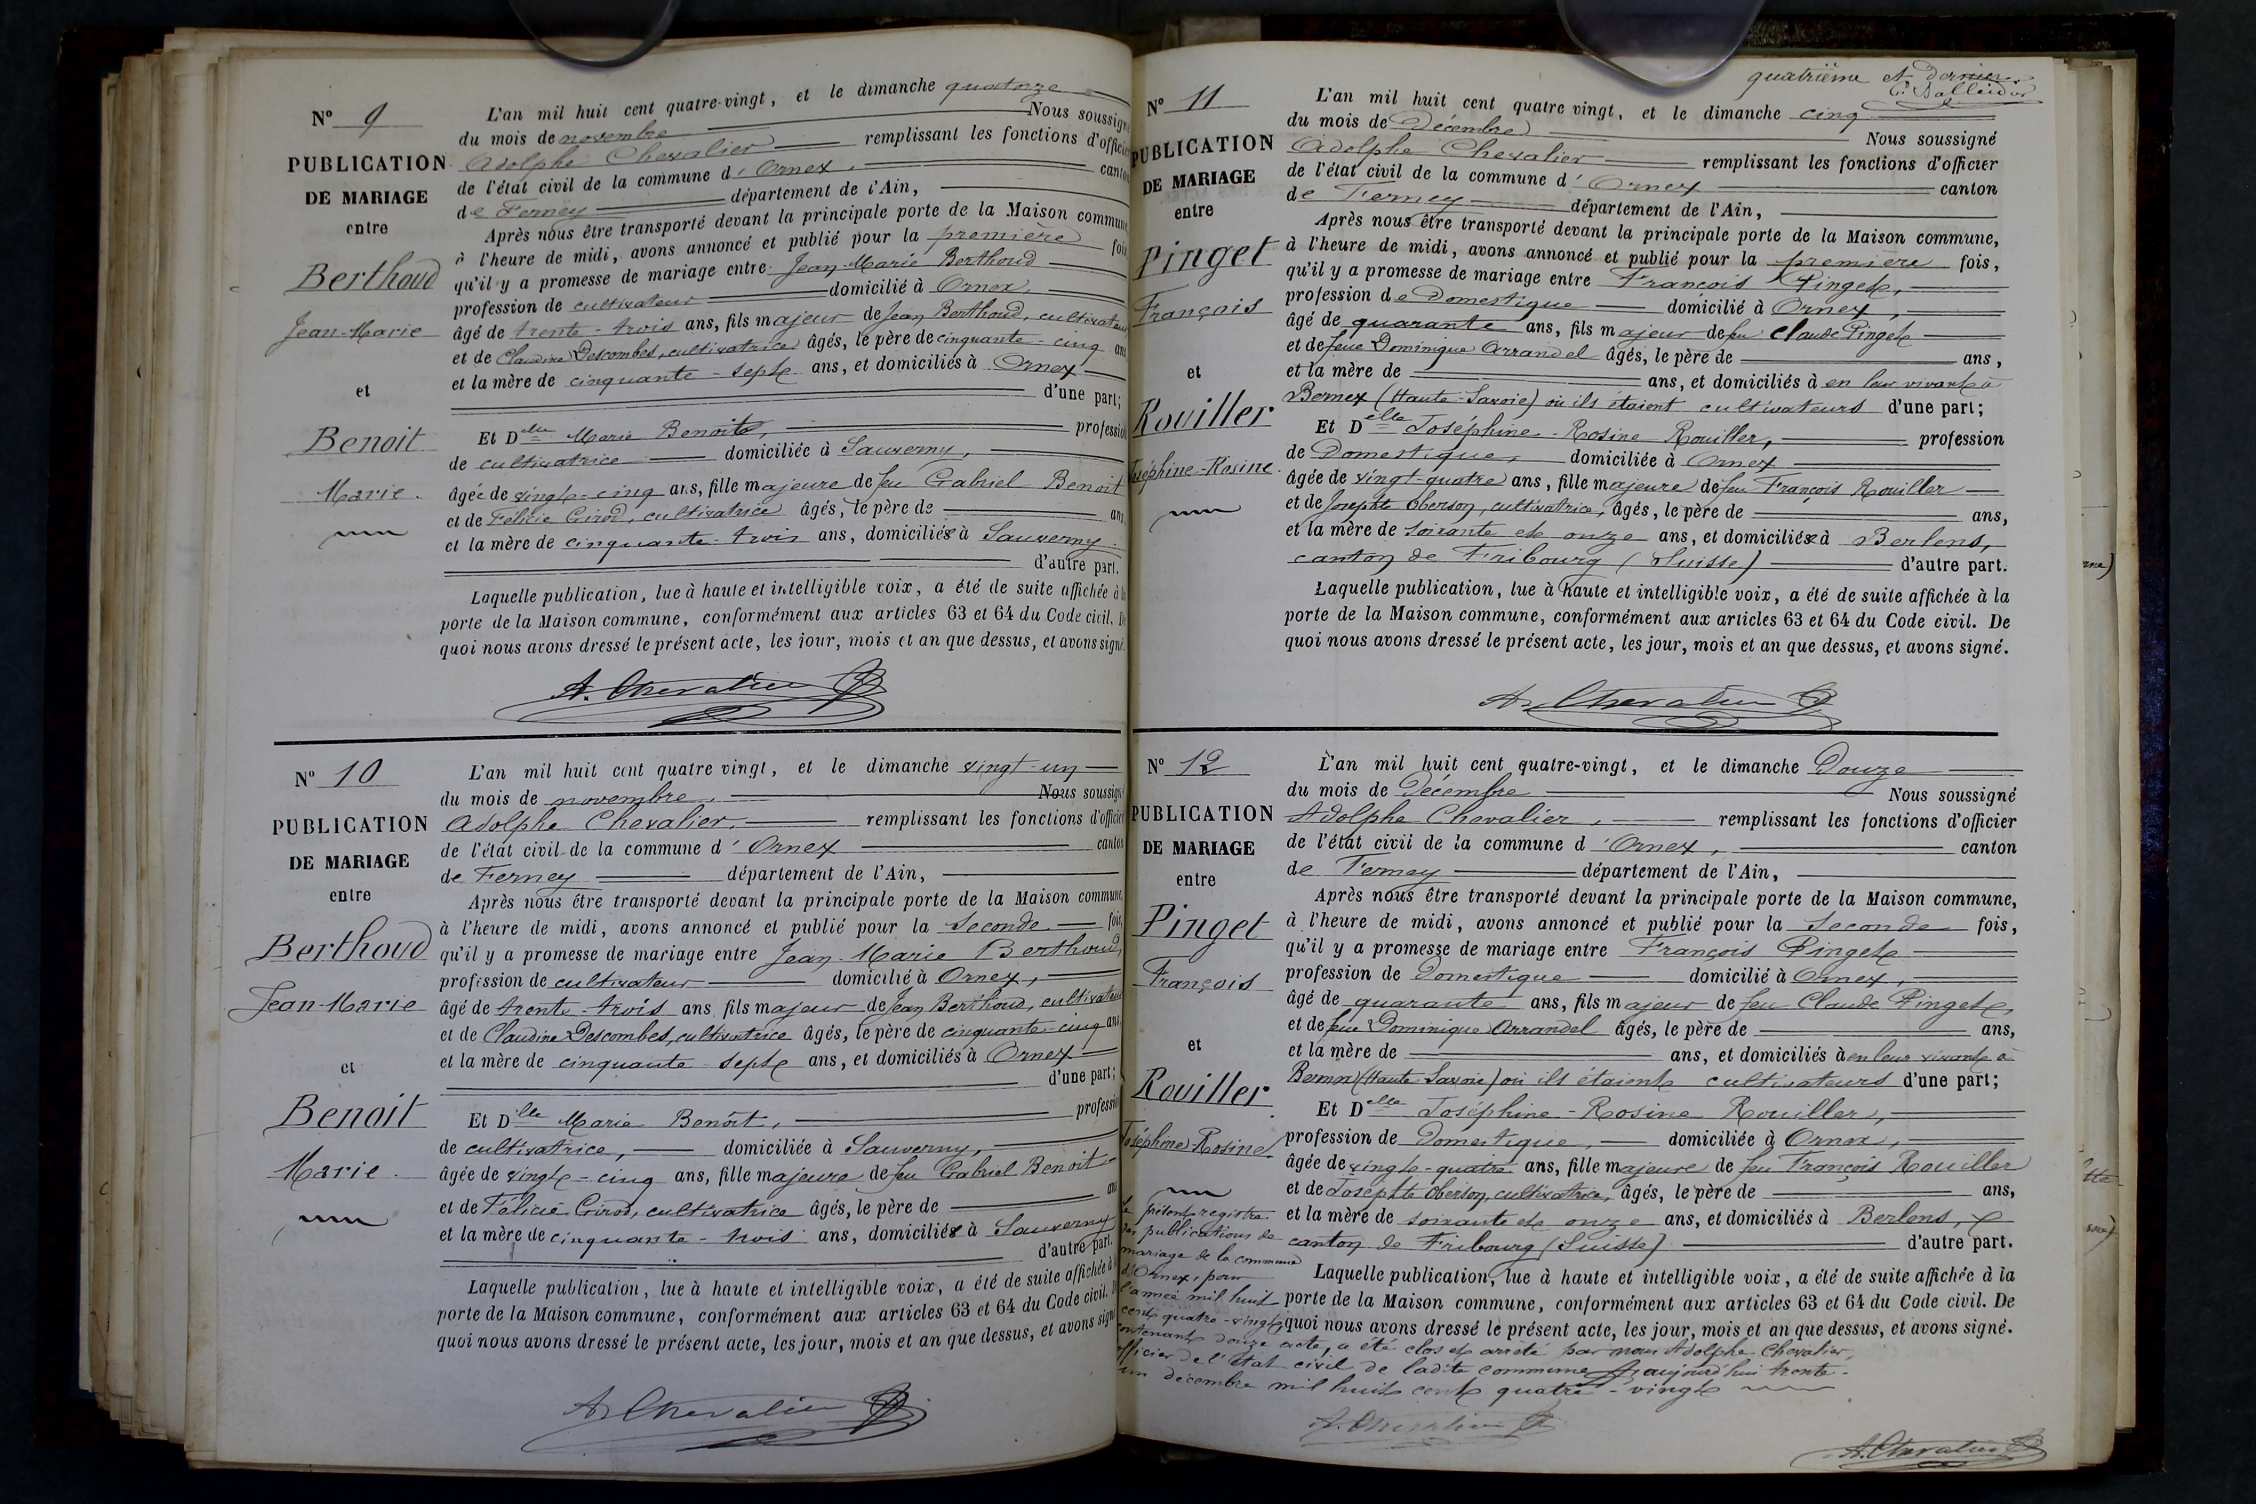 N° 9
PUBLICATION
DE MARIAGE
entre
Berthoud
Jean-Marie
et
Benoit
Marie.
L'an mil huit cent quatre-vingt, et le dimanche quatorze
du mois de novembre Nous soussigné
Adolphe Chevalier remplissant les fonctions d'officier
de l'état civil de la commune d'Ornex, canton
de Ferney département de l'Ain,
Après nous être transporté devant la principale porte de la Maison commune
à l'heure de midi, avons annoncé et publié pour la première fois
qu'il y a promesse de mariage entre Jean-Marie Berthoud
profession de cultivateur domicilié à Ornex,
âgé de trente-trois ans, fils majeur de Jean Berthoud, cultivateur
et de Claudine Descombes, cultivatrice âgés, le père de cinquante-cinq ans
et la mère de cinquante-sept ans, et domiciliés à Ornex
d'une part;
Et Dlle Marie Benoit, profession
de cultivatrice domiciliée à Sauverny,
âgée de vingt-cinq ans, fille majeure de feu Gabriel Benoit
et de Félicie Girod, cultivatrice âgés, le père de ans
et la mère de cinquante-trois ans, domiciliés à Sauverny.
d'autre part.
Laquelle publication, lue à haute et intelligible voix, a été de suite affichée à la
porte de la Maison commune, conformément aux articles 63 et 64 du Code civil. De
quoi nous avons dressé le présent acte, les jour, mois et an que dessus, et avons signé.
A. Chevalier
N° 10
PUBLICATION
DE MARIAGE
entre
Berthoud
Jean-Marie
et
Benoit
Marie.
L'an mil huit cent quatre vingt, et le dimanche vingt-un
du mois de novembre, Nous soussigné
Adolphe Chevalier, remplissant les fonctions d'officier
de l'état civil de la commune d'Ornex canton
de Ferney département de l'Ain,
Après nous être transporté devant la principale porte de la Maison commune,
à l'heure de midi, avons annoncé et publié pour la seconde fois,
qu'il y a promesse de mariage entre Jean-Marie Berthoud,
profession de cultivateur domicilié à Ornex,
âgé de trente-trois ans fils majeur de Jean Berthoud, cultivateur
et de Claudine Descombes, cultivatrice âgés, le père de cinquante-cinq ans
et la mère de cinquante sept ans, et domiciliés à Ornex
d'une part;
Et Dlle Marie Benoit, profession
de cultivatrice, domiciliée à Sauverny,
âgée de vingt-cinq ans, fille majeure de feu Gabriel Benoit
et de Félicie Girod, cultivatrice âgés, le père de ans
et la mère de cinquante-trois ans, domiciliés à Sauverny
d'autre part.
Laquelle publication, lue à haute et intelligible voix, a été de suite affichée à la
porte de la Maison commune, conformément aux articles 63 et 64 du Code civil.
quoi nous avons dressé le présent acte, les jour, mois et an que dessus, et avons signé
A. Chevalier
quatrième et dernier
N° 11
PUBLICATION
DE MARIAGE
entre
Pinget
François
et
Rouiller
Joséphine-Rosine.
L'an mil huit cent quatre vingt, et le dimanche cinq
du mois de Décembre Nous soussigné
Adolphe Chevalier remplissant les fonctions d'officier
de l'état civil de la commune d'Ornex canton
de Ferney département de l'Ain,
Après nous être transporté devant la principale porte de la Maison commune,
à l'heure de midi, avons annoncé et publié pour la première fois,
qu'il y a promesse de mariage entre François Pinget,
profession de Domestique domicilié à Ornex,
âgé de quarante ans, fils majeur de feu Claude Pinget
et de feue Dominique Arrandel âgés, le père de ans,
et la mère de ans, et domiciliés à en leur vivant à
Bernex (Haute-Savoie) où ils étaient cultivateurs d'une part;
Et Delle Joséphine-Rosine Rouiller, profession
de Domestique, domiciliée à Ornex
âgée de vingt-quatre ans, fille majeure de feu François Rouiller
et de Josephte Oberson, cultivatrice, âgés, le père de ans,
et la mère de soixante et onze ans, et domiciliés à Berlens,
canton de Fribourg (Suisse) d'autre part.
Laquelle publication, lue à haute et intelligible voix, a été de suite affichée à la
porte de la Maison commune, conformément aux articles 63 et 64 du Code civil. De
quoi nous avons dressé le présent acte, les jour, mois et an que dessus, et avons signé.
A. Chevalier
N° 12
PUBLICATION
DE MARIAGE
entre
Pinget
François
et
Rouiller
Joséphine-Rosine
L'an mil huit cent quatre-vingt, et le dimanche Douze
du mois de Décembre Nous soussigné
Adolphe Chevalier, remplissant les fonctions d'officier
de l'état civil de la commune d'Ornex, canton
de Ferney département de l'Ain,
Après nous être transporté devant la principale porte de la Maison commune,
à l'heure de midi, avons annoncé et publié pour la seconde fois,
qu'il y a promesse de mariage entre François Pinget
profession de Domestique domicilié à Ornex,
âgé de quarante ans, fils majeur de feu Claude Pinget,
et de feue Dominique Arrandel âgés, le père de ans,
et la mère de ans, et domiciliés à en leur vivant à
Bernex (Haute Savoie) où ils étaient cultivateurs d'une part;
Et Delle Joséphine-Rosine Rouiller,
profession de Domestique, domiciliée à Ornex,
âgée de vingt-quatre ans, fille majeure de feu François Rouiller
et de Josephte Oberson, cultivatrice, âgés, le père de ans,
et la mère de soixante et onze ans, et domiciliés à Berlens,
canton de Fribourg (Suisse) d'autre part.
Laquelle publication, lue à haute et intelligible voix, a été de suite affichée à la
porte de la Maison commune, conformément aux articles 63 et 64 du Code civil. De
quoi nous avons dressé le présent acte, les jour, mois et an que dessus, et avons signé.
Le présent registre
des publications de
mariage de la commune
d'Ornex, pour
l'année mil huit
cent quatre-vingt,
contenant douze acte, a été clos et arrêté par nous Adolphe Chevalier,
officier de l'état civil de ladite commune, aujourd'hui trente-
un décembre mil huit cent quatre-vingt
A. Chevalier
A. Chevalier